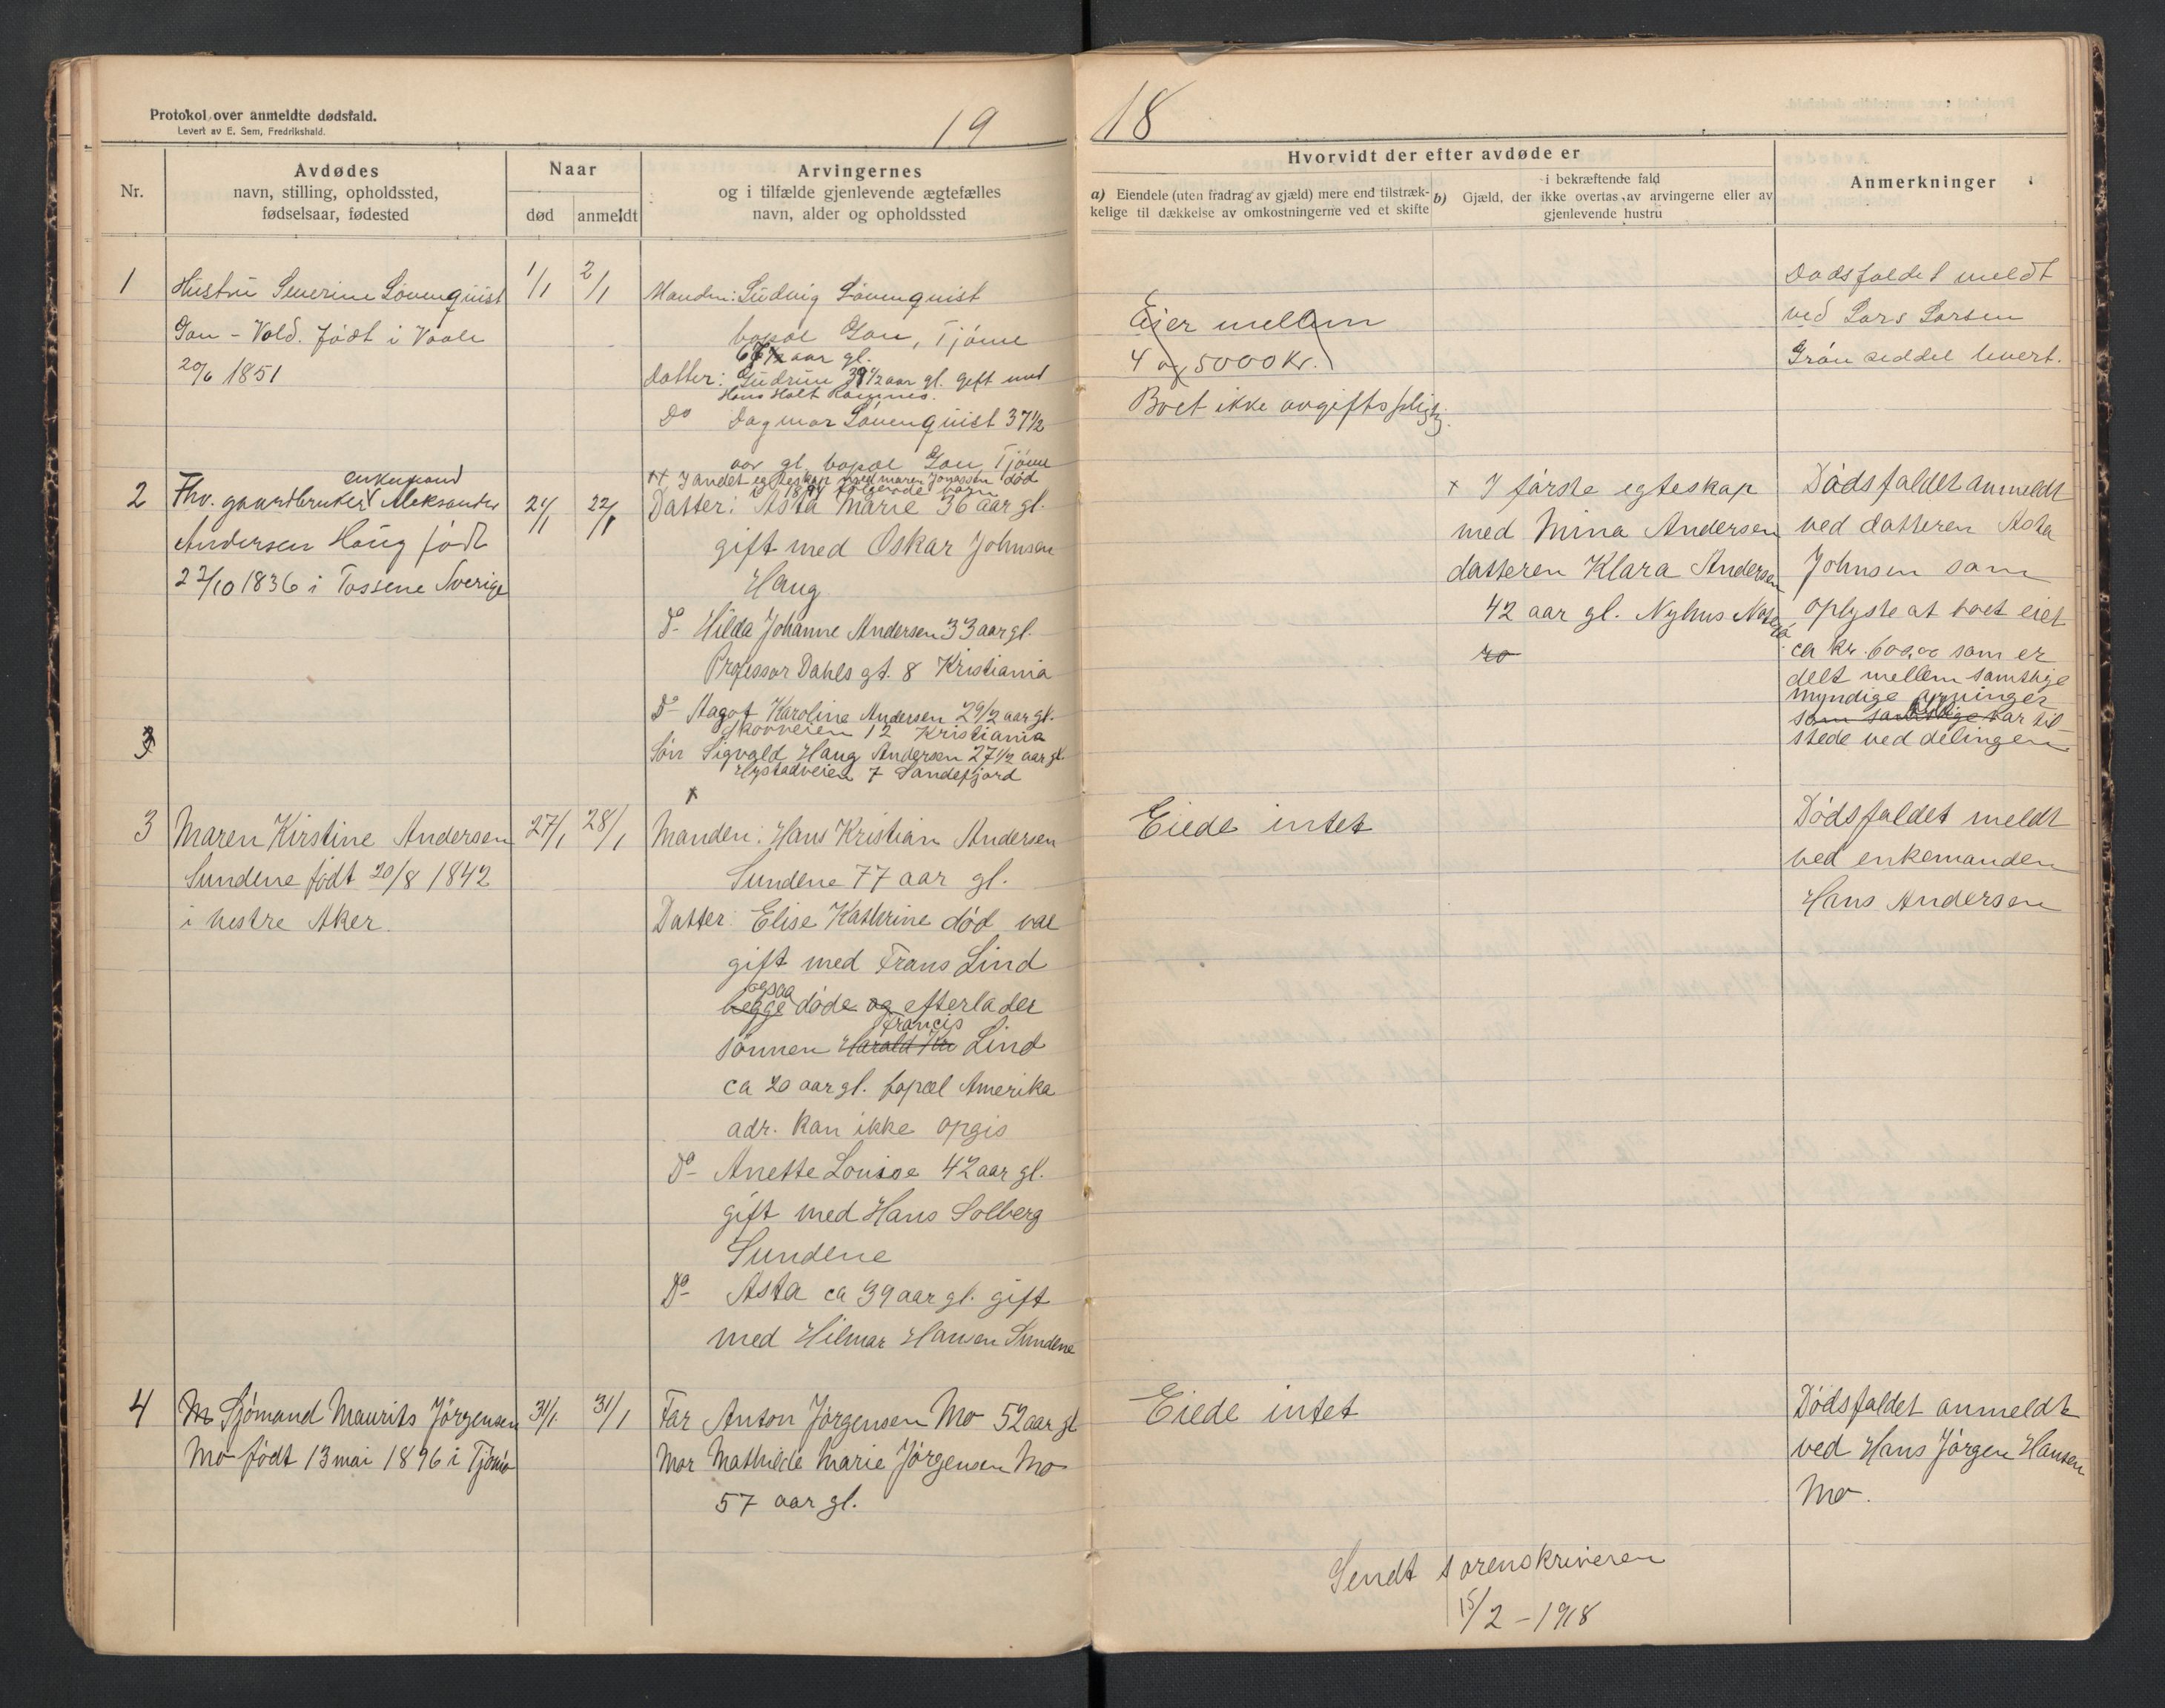 Protokol over anmeldte dødsfald.
Levert av E. Sem, Fredrikshald.
19
18
Nr.
Avdødes
navn, stilling, opholdssted,
fødselsaar, fødested
Naar
død
anmeldt
Arvingernes
og i tilfælde gjenlevende ægtefælles
navn, alder og opholdssted
Hvorvidt der efter avdøde er
a) Eiendele (uten fradrag av gjæld) mere end tilstræk-
kelige til dækkelse av omkostningerne ved et skifte
i bekræftende fald
b) Gjæld, der ikke overtas av arvingerne eller av
gjenlevende hustru
Anmerkninger
1
Hustru Severine Løvenquist
Gon - Vold. født i Vaale
20/6 1851
1/1
2/1
Manden: Ludvig Løvenquist
bopæl Gon, Tjøme
67 1/2 aar gl.
Datter: Gudrun 39 1/2 aar gl. gift med
Hans Holt
Do Dagmar Løvenquist 37 1/2
aar gl. bopæl Gon, Tjøme
Eier mellem
4 og 5000 Kr.
Boet ikke avgiftspligtig.
Dødsfaldet meldt
ved Lars Larsen
Grøn seddel levert.
2
enkemand
Fhv. gaardbruker Aleksander
Andersen Haug født
22/10 1836 i Tossene Sverige
21/1
22/1
++ I andet egteskap med Maren Jonassen død
følgende børn
Datter: Asta Marie 36 aar gl.
gift med Oskar Johnsen
Haug
Do Hilda Johanne Andersen 33 aar gl.
Professor Dahls gt. 8 Kristiania
Do Aagot Karoline Andersen 29 1/2 aar gl.
Skovveien 12 Kristiania
Søn Sigvald Haug Andersen 27 1/2 aar gl.
Hystadveien 7 Sandefjord
+
+ I første egteskap
med Mina Andersen
datteren Klara Andersen
42 aar gl. Nyhus Nøtterø
rø
Dødsfaldet anmeldt
ved datteren Asta
Johnsen som
oplyste at boet eiet
ca kr. 600,00 som er
delt mellem samtlige
myndige arvinger
som samtlige var til-
stede ved delingen
3
3
Maren Kirstine Andersen
Sundene født 20/8 1842
i vestre Aker.
27/1
28/1
Manden: Hans Kristian Andersen
Sundene 77 aar gl.
Datter: Elise Katherine død var
gift med Frans Lind
ogsaa
begge døde og efterlader
Francis
sønnen Harald Kr Lind
ca 20 aar gl. bopæl Amerika
adr. kan ikke opgis
Do Anette Louise 42 aar gl.
gift med Hans Solberg
Sundene
Do Asta ca 39 aar gl. gift
med Hilmar Hansen Sundene
Eiede intet
Dødsfaldet meldt
ved enkemanden
Hans Andersen
4
M Sjømand Maurits Jørgensen
Mo født 13 mai 1896 i Tjømø
31/1
31/1
Far Anton Jørgensen Mo 52 aar gl
Mor Mathilde Marie Jørgensen Mo
57 aar gl.
Eiede intet
Dødsfaldet anmeldt
ved Hans Jørgen Hansen
Mo.
Sendt sorenskriveren
15/2 - 1918